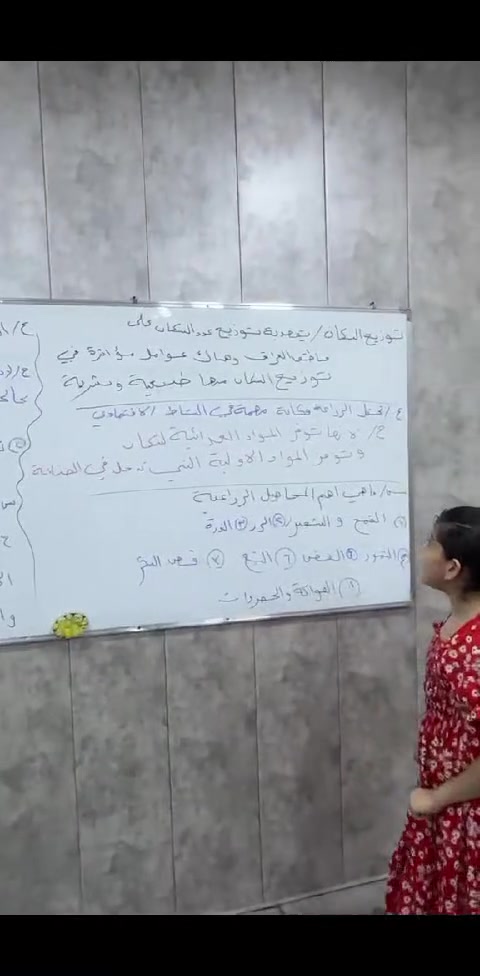 توزيع السكان / يقصد به توزيع عدد السكان على
محافظات العراق وهناك عوامل مؤثرة في
توزيع السكان منها طبيعية وبشرية
ع / تحتل الزراعة مكانة مهمة في النشاط الاقتصادي
ج / لانها توفر المواد الغذائية لسكان
وتوفر المواد الاولية التي تدخل في الصناعة
س / ماهي اهم المحاصيل الزراعية
① القمح و الشعير ② الرز ③ الذرة
④ التمور ⑤ القطن ⑥ التبغ ⑦ قصب السكر
⑧ الفواكة والخضروات